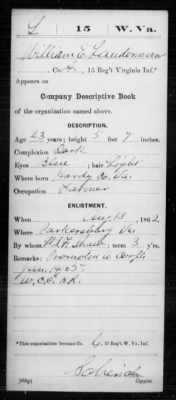 L | 15 | W. Va.
William E. Landerman
Co. , 15 Reg't Virginia Inf.*
Appears on
Company Descriptive Book
of the organization named above.
DESCRIPTION.
Age 23 years; height 5 feet 7 inches.
Complexion Dark
Eyes Blue; hair Light
Where born Hardy Co. Va.
Occupation Farmer
ENLISTMENT.
When Aug 13, 1862.
Where Parkersburg Va.
By whom ; term 3 y'rs.
Remarks: Promoted to Corp'l
Jan. 1, 65
*This organization became Co. , 15 Reg't W. Va. Inf.
Copyist.